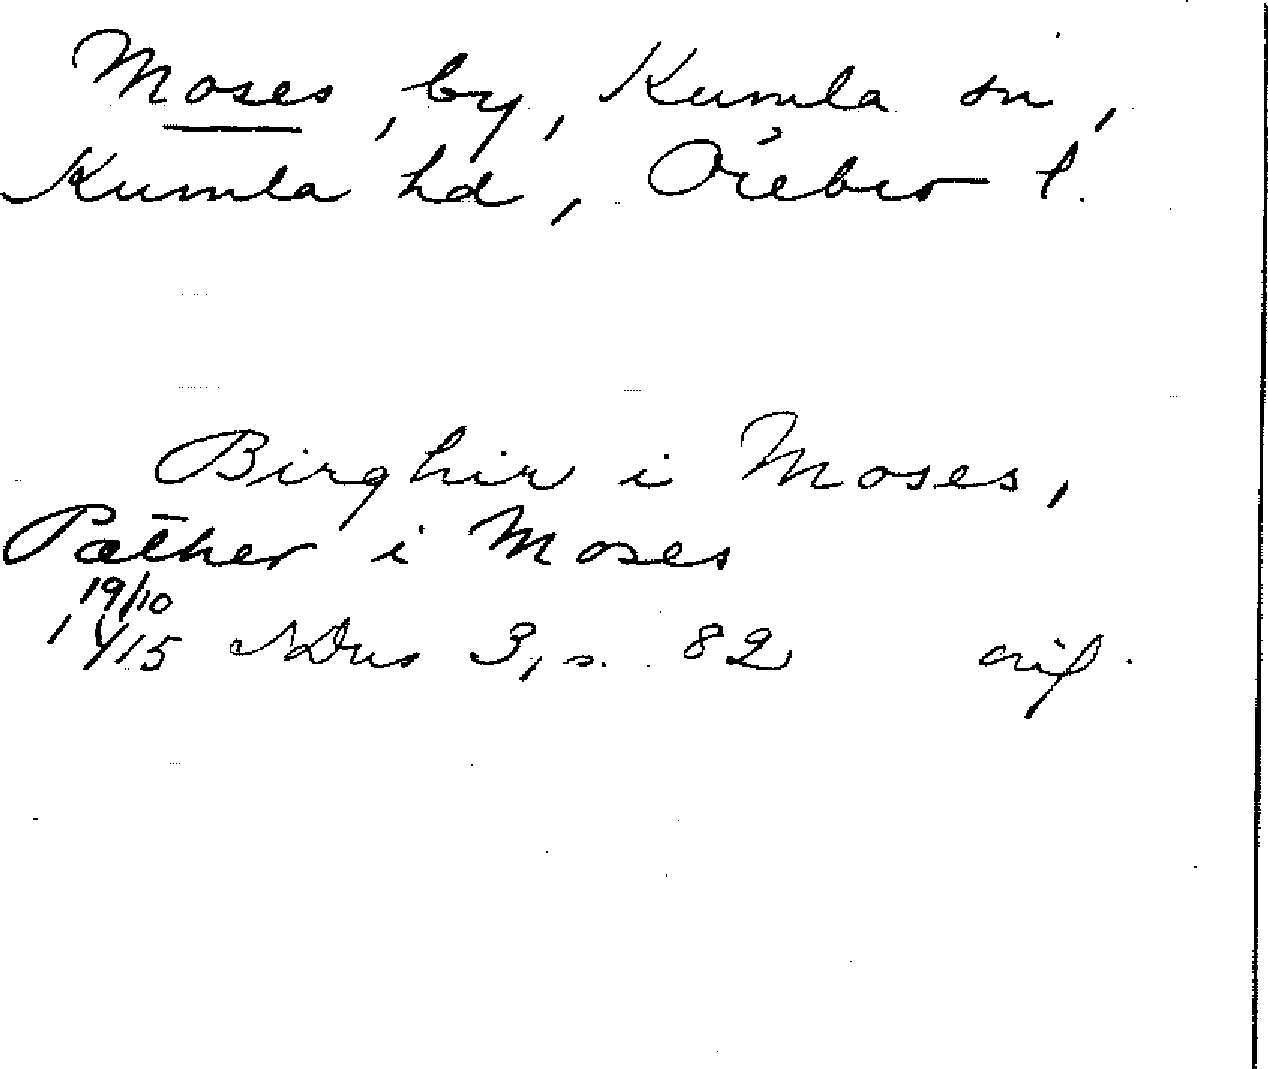 Moses, by, Kumla sn,
Kumla hd, Örebro l.
Birghir i Moses,
Pæther i Moses
19/10
1415 NDns 3, s. 82 orig.